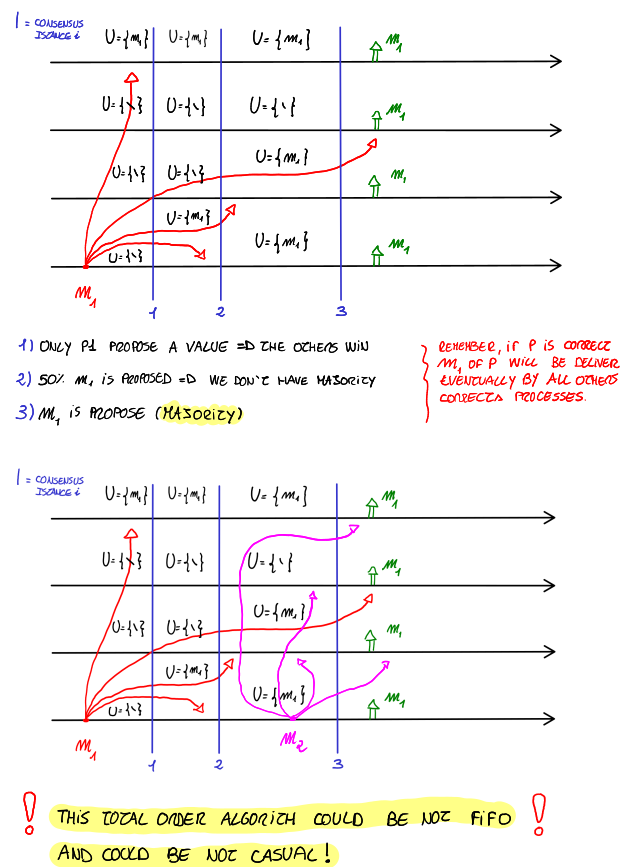 | = CONSENSUS
ISTANCE i
U={m₁} U={m₁} U={m₁}
m₁
U={\} U={\} U={\}
m₁
U={m₁}
U={\} U={\}
m₁
U={m₁}
U={m₁}
U={\}
m₁
m₁
1 2 3
1) ONLY P1 PROPOSE A VALUE => THE OTHERS WIN
2) 50% m₁ IS PROPOSED => WE DON'T HAVE MAJORITY
3) m₁ IS PROPOSE (MAJORITY)
REMEMBER, IF P IS CORRECT
m₁ OF P WILL BE DELIVER
EVENTUALLY BY ALL OTHERS
CORRECTS PROCESSES.
| = CONSENSUS
ISTANCE i
U={m₁} U={m₁} U={m₁}
m₁
U={\} U={\} U={\}
m₁
U={m₁}
U={\} U={\}
m₁
U={m₁}
U={m₁}
U={\}
m₁
m₁ m₂
1 2 3
! THIS TOTAL ORDER ALGORITH COULD BE NOT FIFO !
AND COULD BE NOT CASUAL!